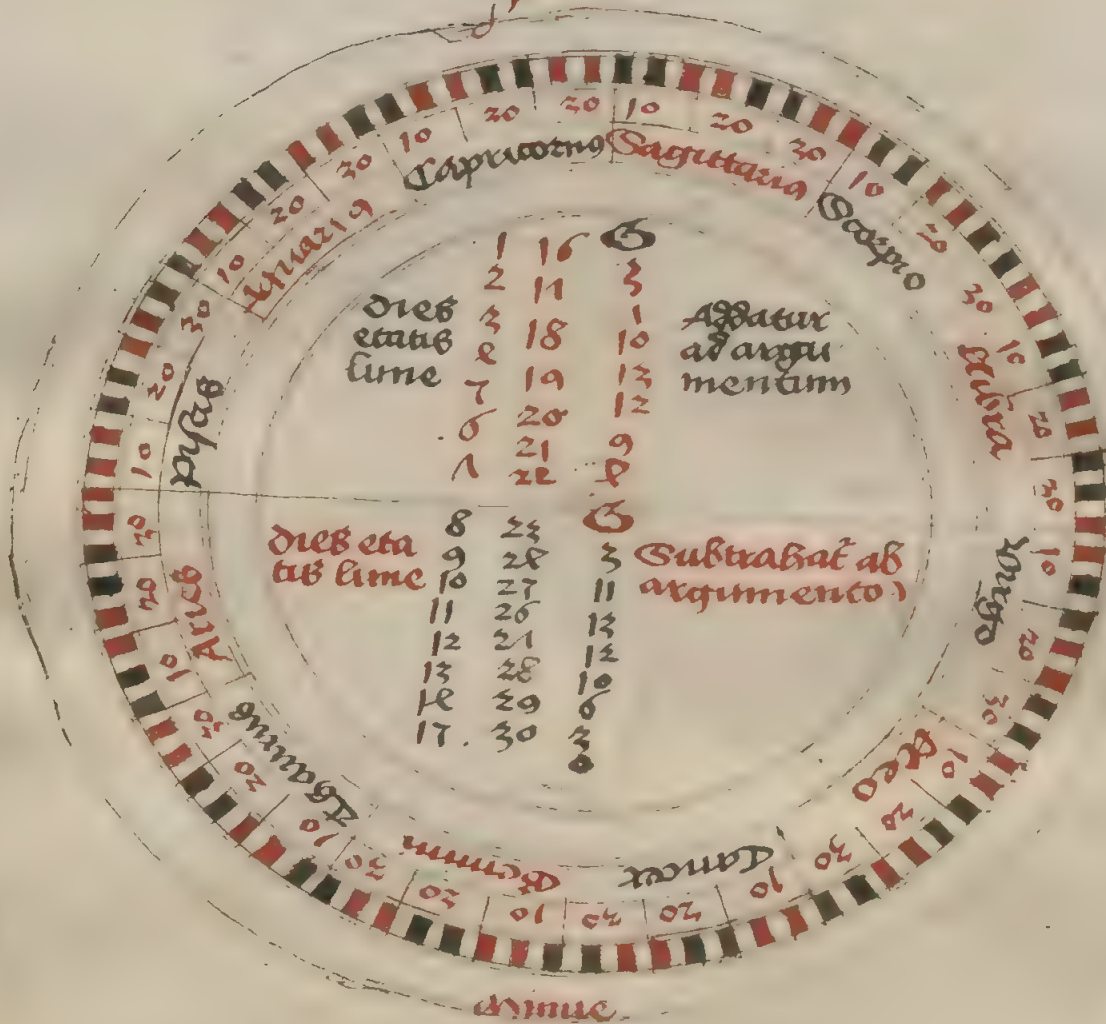 Capricornus
10 20 30
Sagittarius
10 20 30
Scorpio
10 20 30
Libra
10 20 30
Virgo
10 20 30
Leo
10 20 30
Cancer
10 20 30
Gemini
10 20 30
Thaurus
10 20 30
Aries
10 20 30
Pisces
10 20 30
Aquarius
10 20 30
dies
etatis
lune
1 16 G
2 17 3
3 18
4 19 10
5 20 13
6 21 12
7 22 9
4
Addatur
ad argu
mentum
dies eta
tis lune
8 23 G
9 24 3
10 25 11
11 26 13
12 27 12
13 28 10
14 29 6
15 30 3
0
Subtrahat̃ ab
argumento
Minue